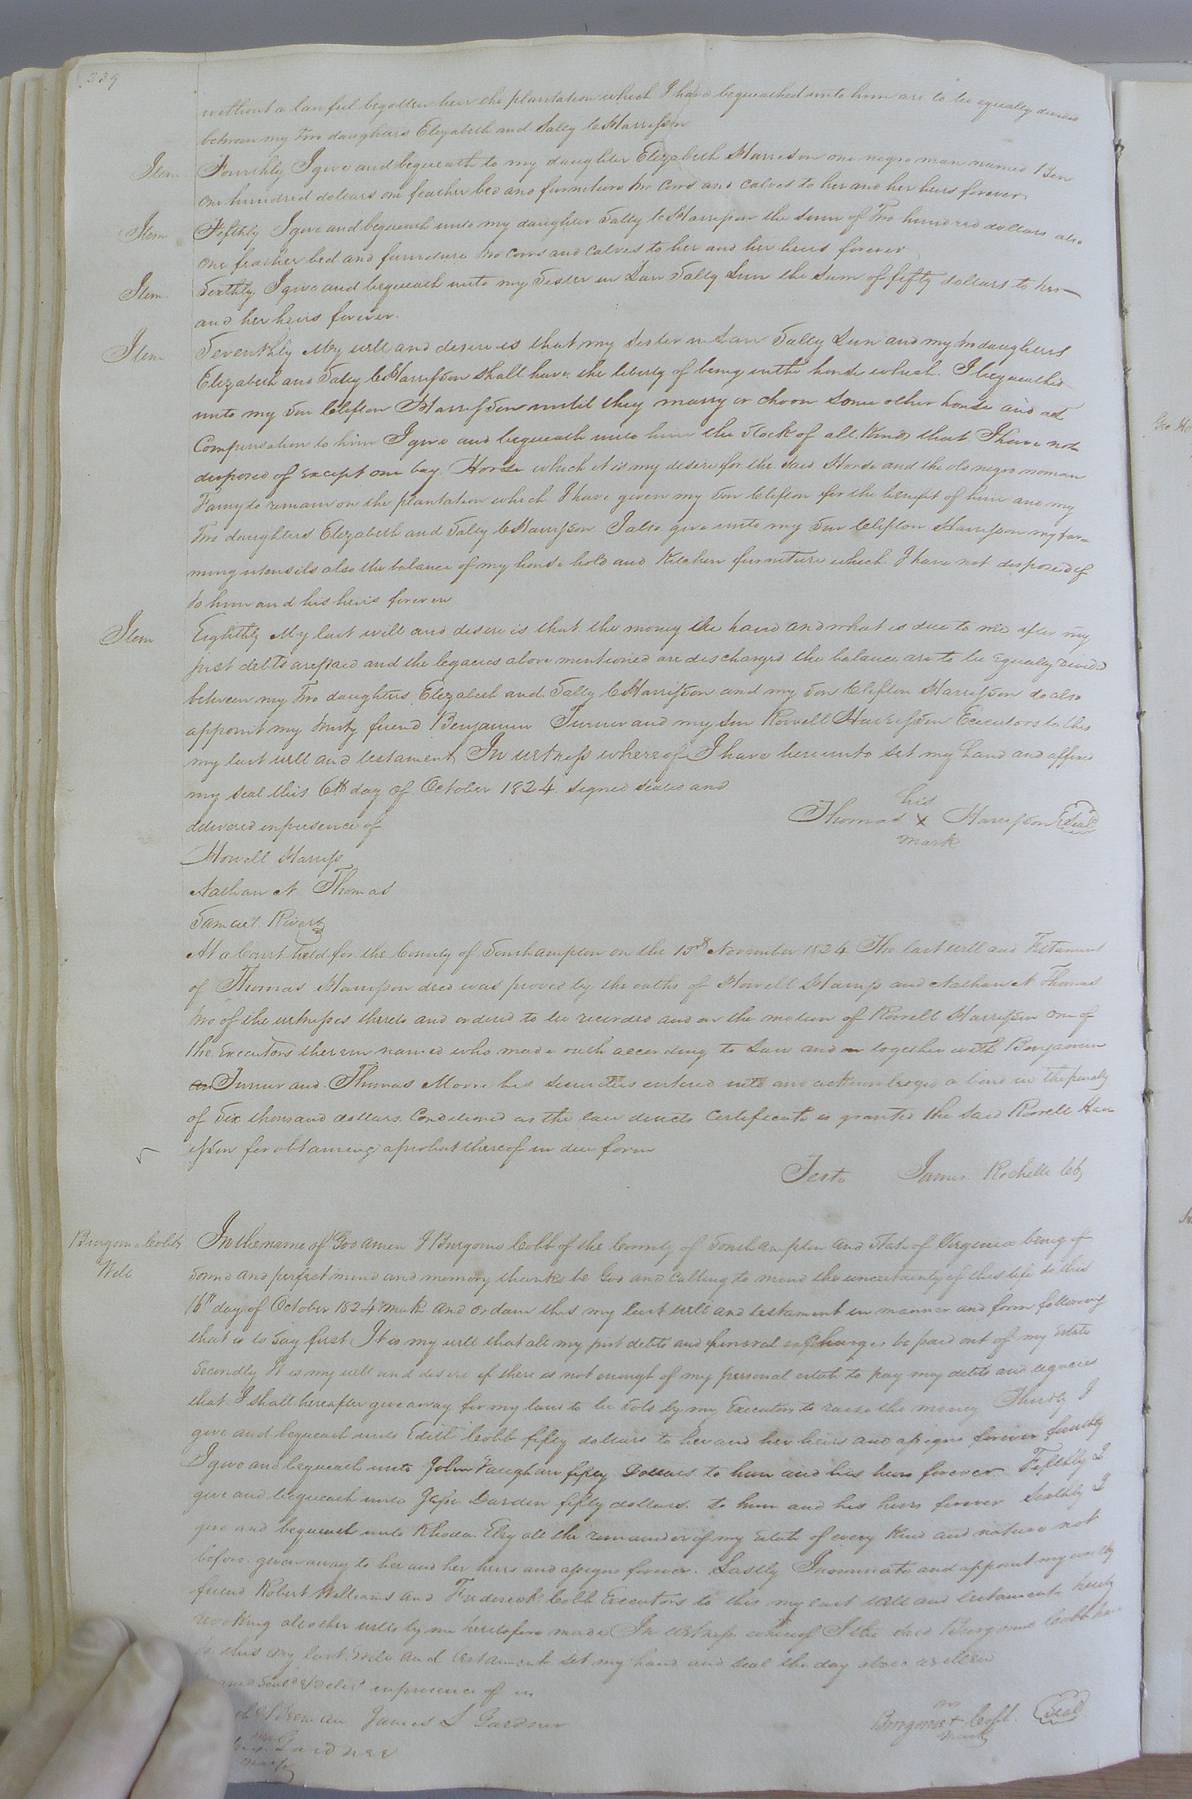 339
without a lawful begotten heir the plantation which I have bequeathed unto him are to be equally divided
between my two daughters Elizabeth and Sally C Harrisson
Item Fourthly I give and bequeath to my daughter Elizabeth Harrison one negro man named Ben
one hundred dollars one feather bed and furniture two cows and calves to her and her heirs forever
Item Fifthly I give and bequeath unto my daughter Sally C Harrisson the sum of Two hundred dollars also
one feather bed and furniture two cows and calves to her and her heirs forever
Item Sixthly I give and bequeath unto my Sister in Law Sally the Sum of fifty dollars to her
and her heirs forever.
Item Seventhly My will and desire is that my sister in Law Sally and my two daughters
Elizabeth and Sally C Harrisson shall have the liberty of being in the house which I bequeathed
unto my Son Clifton Harrisson until they marry or choose some other house and as
Compensation to him I give and bequeath unto him the Stock of all kinds that I have not
disposed of except one bay Horse which it is my desire for the said Horse and the old negro woman
to remain on the plantation which I have given my Son Clifton for the benefit of him and my
Two daughters Elizabeth and Sally C Harrisson I also give unto my Son Clifton Harrisson my far=
ming utensils also the balance of my house hold and Kitchen furniture which I have not disposed of
to him and his heirs forever
Item Eighthly My last will and desire is that the money on hand and what is due to me after my
just debts are paid and the legacies above mentioned are discharged the balance are to be Equally divided
between my Two daughters Elizabeth and Sally C Harrisson and my Son Clifton Harrisson do also
appoint my trusty friend Benjamin Turner and my Son Rowell Harrisson Executors to this
my last will and testament In witness whereof I have hereunto set my hand and affixed
my seal this 6th day of October 1824 Signed sealed and
delivered in presence of
his
Thomas X Harrisson Seal
mark
Howell Harriss
Nathan N Thomas
Samuel
At a Court held for the County of Southampton on the 15th November 1824 The last will and Testament
of Thomas Harrisson decd was proved by the oaths of Howell Harriss and Nathan N Thomas
two of the witnesses thereto and ordered to be recorded and on the motion of Rowell Harrisson one of
the Executors therein named who made oath according to Law and together with Benjamin
Turner and Thomas Moore his Securities entered into and acknowledged a bond in the penalty
of Six thousand dollars Conditioned as the law directs Certificate is granted the said Rowell Harr
isson for obtaining a probat thereof in due form
Teste James Rochelle Clk
Burgone Cobbs
Will
In the name of God amen I Burgone Cobb of the County of Southampton and State of Virginia being of
sound and perfect mind and memory thanks be God and Calling to mind the uncertainty of this life do this
16th day of October 1824 make and ordain this my last will and testament in manner and form following
that is to say first It is my will that all my just debts and funeral charges be paid out of my Estate
Secondly It is my will and desire if there is not enough of my personal estate to pay my debts and legacies
that I shall hereafter give away for my land to be sold by my Executors to raise the money Thirdly I
give and bequeath unto Edith Cobb fifty dollars to her and her heirs and assigns forever fourthly
I give and bequeath unto John Vaughan fifty Dollars to him and his heirs forever Fifthly I
give and bequeath unto Jesse Darden fifty dollars to him and his heirs forever Sixthly I
give and bequeath unto Rhoda Eley all the remainder of my Estate of every kind and nature not
before given away to her and her heirs and assigns forever. Lastly I nominate and appoint my worthy
friend Robert Williams and Frederick Cobb Executors to this my last will and testament hereby
revoking all other wills by me heretofore made In witness whereof I the said Burgone Cobb have
to this my last will and testament set my hand and seal the day above written
in presence of us
James S Gardner
Burgone + Cobb Seal
mark
Gardner
mark